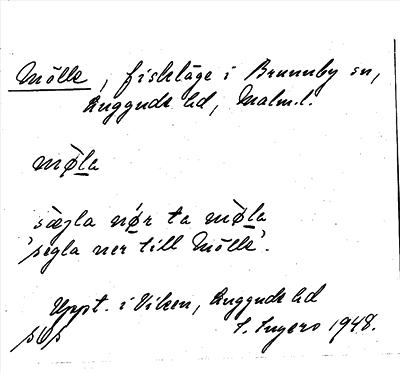 Mölle, fiskläge i Brunnby sn,
Luggude hd, Malm.l.
mø̀la
sæ̀jla nǿr ta mø̀la
'segla ner till Mölle'.
Uppt. i Viken, Luggude hd
S. Ingers 1948.